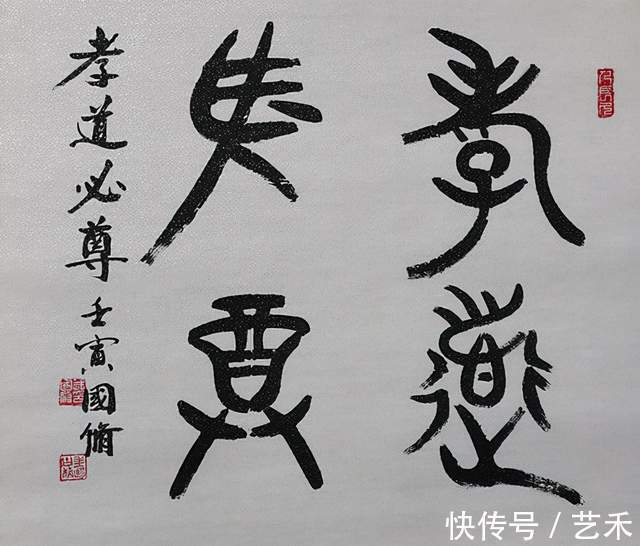 孝道
必尊
孝道必尊壬寅國脩
快传号 / 艺禾